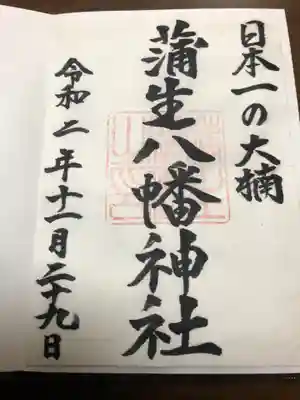 日本一の大楠
蒲生八幡神社
令和二年十一月二十九日